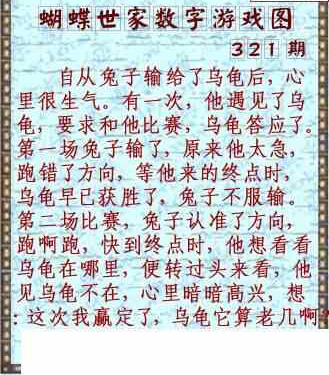 蝴蝶世家数字游戏图
321期
自从兔子输给了乌龟后，心
里很生气。有一次，他遇见了乌
龟，要求和他比赛，乌龟答应了。
第一场兔子输了，原来他太急，
跑错了方向，等他来的终点时，
乌龟早已获胜了，兔子不服输。
第二场比赛，兔子认准了方向，
跑啊跑，快到终点时，他想看看
乌龟在哪里，便转过头来看，他
见乌龟不在，心里暗暗高兴，想
：这次我赢定了，乌龟它算老几啊？